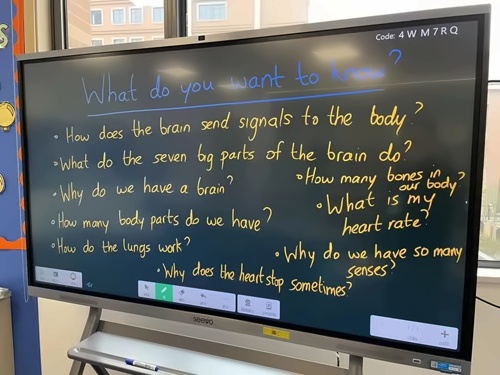 Code: 4WM7RQ
What do you want to know?
• How does the brain send signals to the body?
• What do the seven big parts of the brain do?
• Why do we have a brain?
• How many body parts do we have?
• How do the lungs work?
• How many bones in
our body?
• What is my
heart rate?
• Why do we have so many
senses?
• Why does the heart stop sometimes?
seewo